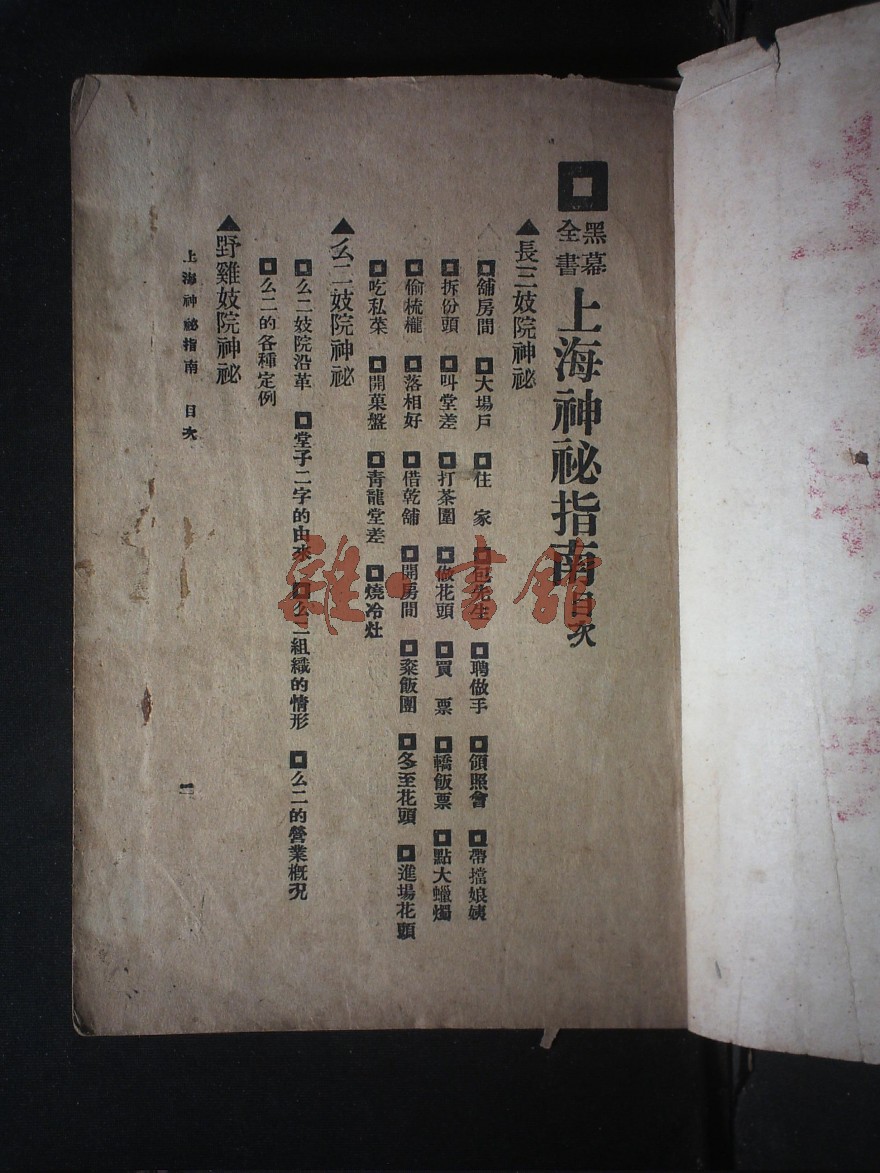 黑幕全書 上海神祕指南目次
▲長三妓院神祕
舖房間 大場戶 住家 包先生 聘做手 領照會 帶擋娘姨
拆份頭 叫堂差 打茶圍 做花頭 買票 轎飯票 點大蠟燭
偷梳櫳 落相好 借乾舖 開房間 粢飯團 冬至花頭 進場花頭
吃私菜 開菓盤 青龍堂差 燒冷灶
▲么二妓院神祕
么二妓院沿革 堂子二字的由來 么二組織的情形 么二的營業槪況
么二的各種定例
▲野雞妓院神祕
上海神祕指南 目次 一
雜·書館